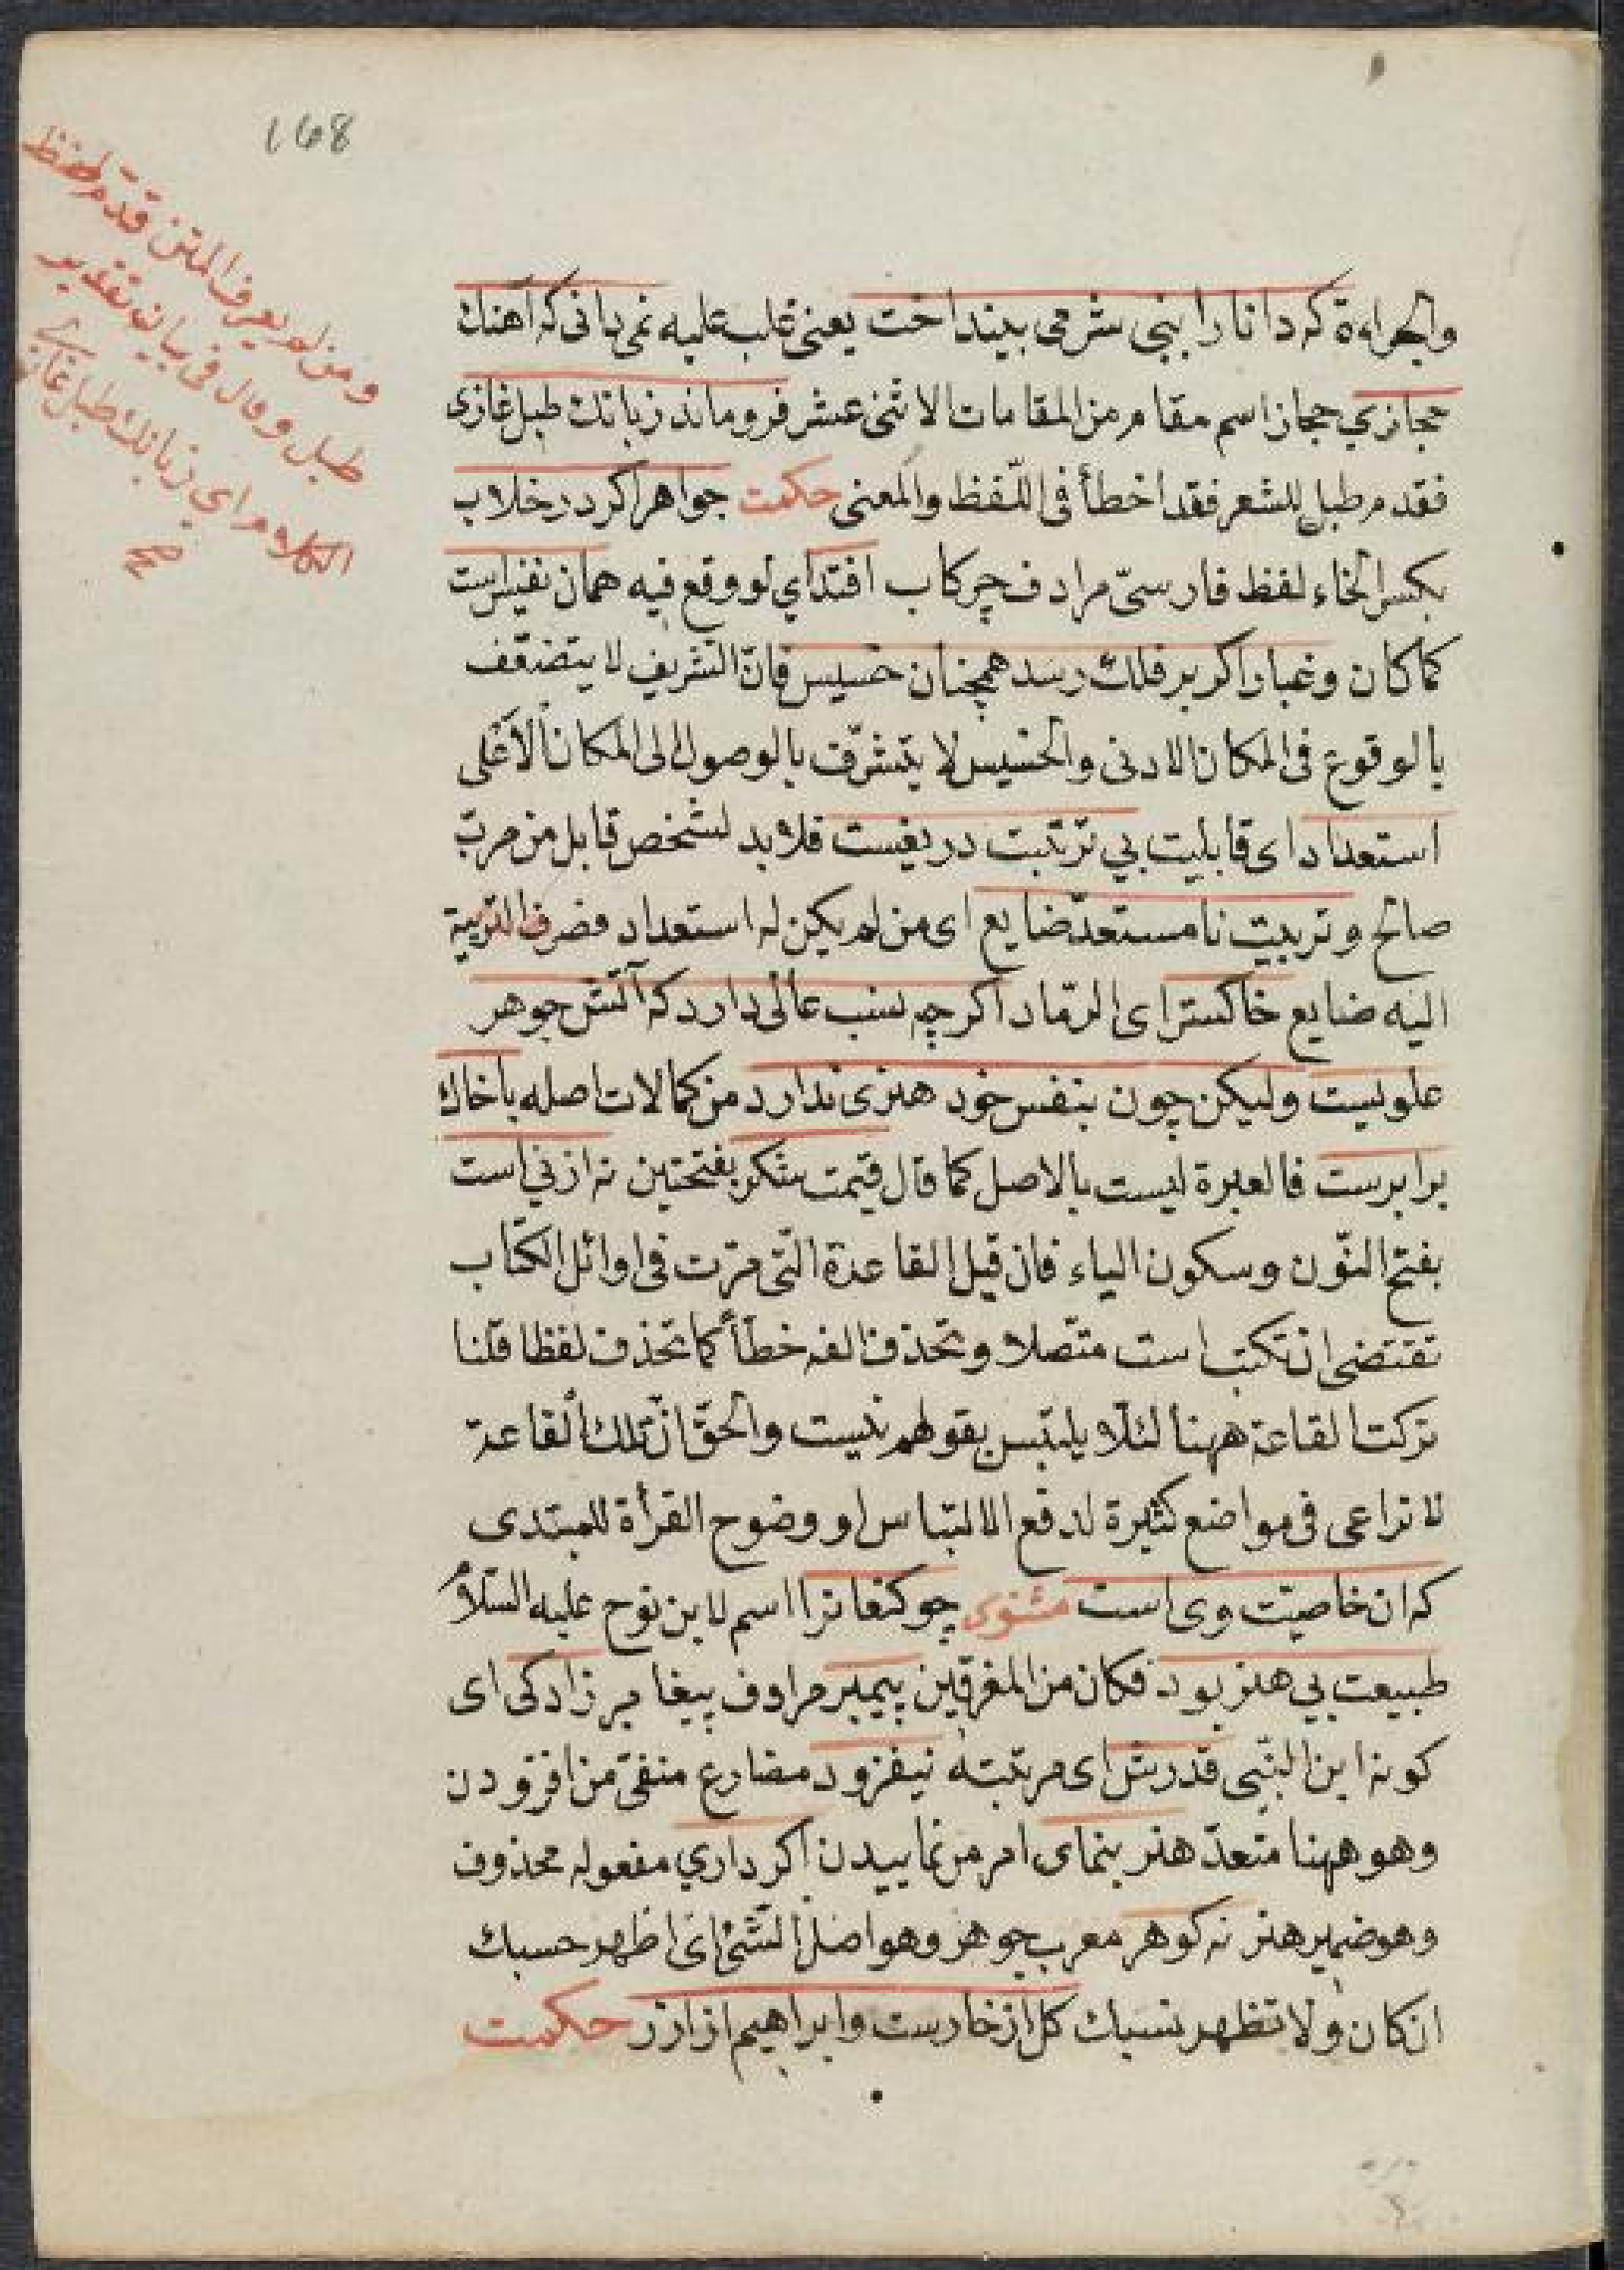 168
ومن لم يعرف المتن قدم لفظ
طبل وقال فى بيان تقدير
الكلام اي زبانك طبل غازى
صح
والجراءة كه دانا را ببى شرمى بينداخت يعنى غلب عليه نمى دانى كه آهنك
حجازي حجاز اسم مقام من المقامات الاثنى عشر فرو ماند زبانك طبل غازى
فقدم طبل للشعر فقد اخطأ فى اللّفظ والمعنى حكمت جواهر اكر در خلاب
بكسر الخاء لفظ فارسىّ مرادف چركاب افتد اي لو وقع فيه همان نفيس است
كما كان وغبار اكر بر فلك رسد همچنان خسيس فانّ الشريف لا يتضعّف
بالوقوع فى المكان الادنى والخسيس لا يتشرّف بالوصول الى المكان الأعلى
استعداد اى قابليت بي تربيت دريغيست فلا بد لشخص قابل من مربّ
صالح وتربيت نا مستعدّ ضايع اى من لم يكن له استعداد فصرف التربية
اليه ضايع خاكستر اى الرّماد اكر چه نسب عالى دارد كه آتش جوهر
علويست وليكن چون بنفس خود هنرى ندارد من كمالات اصله با خاك
برابرست فالعبرة ليست بالاصل كما قال قيمت شكر بفتحتين نه از نى است
بفتح النّون وسكون الياء فان قيل القاعدة الّتى مرّت فى اوائل الكتاب
تقتضى ان تكتب است متّصلا وتحذف الفه خطأ كما تحذف لفظا قلنا
تركت القاعدة ههنا لئلّا يلتبس بقولهم نيست والحقّ انّ تلك القاعدة
لا تراعى فى مواضع كثيرة لدفع الالتباس او وضوح القرأة للمبتدى
كه ان خاصيّت وى است مثنوى چو كنعانرا اسم لابن نوح عليه السّلام
طبيعت بي هنر بود فكان من المغرقين پيمبر مرادف پيغامبر زادكى اى
كونه ابن النّبى قدرش اى مرتبته نيفزود مضارع منفىّ من افزودن
وهو ههنا متعدّ هنر بنماى امر من نماييدن اكر داري مفعوله محذوف
وهو ضمير هنر نه كوهر معرب جوهر وهو اصل الشّئ اى اظهر حسبك
ان كان ولا تظهر نسبك كل از خارست وابراهيم از ازر حكمت